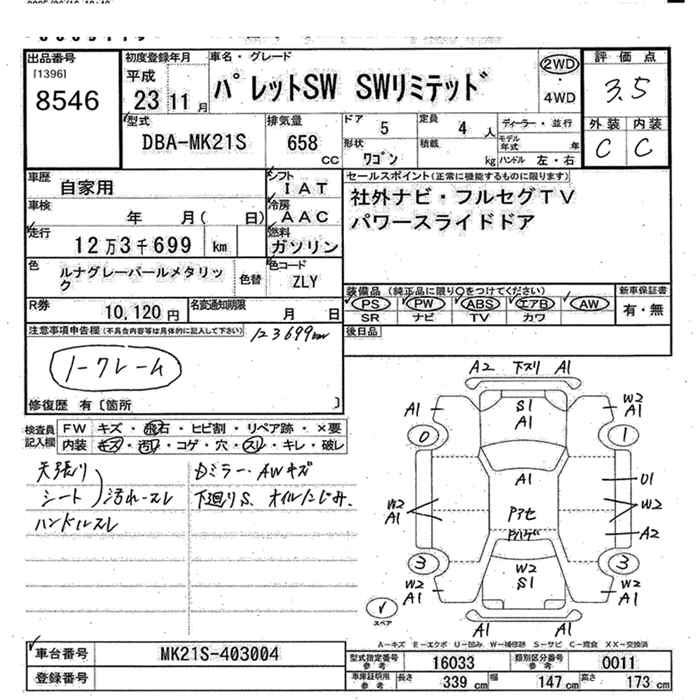 出品番号
[1396]
8546
初度登録年月
平成
23 11 月
車名・グレード
パレットSW SWリミテッド
2WD
・
4WD
評価点
3.5
外装 内装
C C
型式
DBA-MK21S
排気量
658 CC
ドア 5
定員 4 人
形状 ワゴン
積載 kg
ディーラー・並行
モデル年式 年
ハンドル 左・右
車歴
自家用
シフト
IAT
車検
年 月( 日)
冷房
AAC
走行
12万3千699 km
燃料
ガソリン
セールスポイント(正常に機能するものに限ります)
社外ナビ・フルセグTV
パワースライドドア
色
ルナグレーパールメタリック
色替
色コード
ZLY
R券
10,120円
名変通知期限
月 日
装備品 (純正品に限り○をつけてください)
PS PW ABS エアB AW
SR ナビ TV カワ
新車保証書
有・無
後日品
注意事項申告欄(不具合内容等は具体的に記入して下さい)
123699km
ノークレーム
修復歴 有〔箇所 〕
検査員記入欄
FW キズ・飛石・ヒビ割・リペア跡・×要
内装 キズ・汚れ・コゲ・穴・スレ・キレ・破レ
天張り
シート
汚れ・スレ
ハンドルスレ
Dミラー・AWキズ
下廻りS、オイルにじみ、
A2 下スリ A1
A1 S1 A1 W2 A1
0 1
A1
U1
W2 A1
W2
Pアセ
A2
Pハゲ
3 3
W2 S1
W2 A1
W2 A1
A1 A1
スペア
A-キズ E-エクボ U-凹み W-補修跡 S-サビ C-腐食 XX-交換済
車台番号
MK21S-403004
登録番号
型式指定番号 参考
16033
類別区分番号 参考
0011
車庫証明用 参考
長さ 339 cm
幅 147 cm
高さ 173 cm